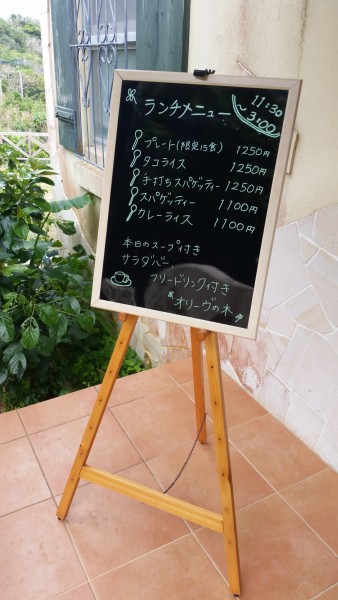 ランチメニュー
11:30
～3:00
プレート(限定15食) 1250円
タコライス 1250円
手打ちスパゲッティー 1250円
スパゲッティー 1100円
カレーライス 1100円
本日のスープ付き
サラダバー
フリードリンク付き
オリーヴの木